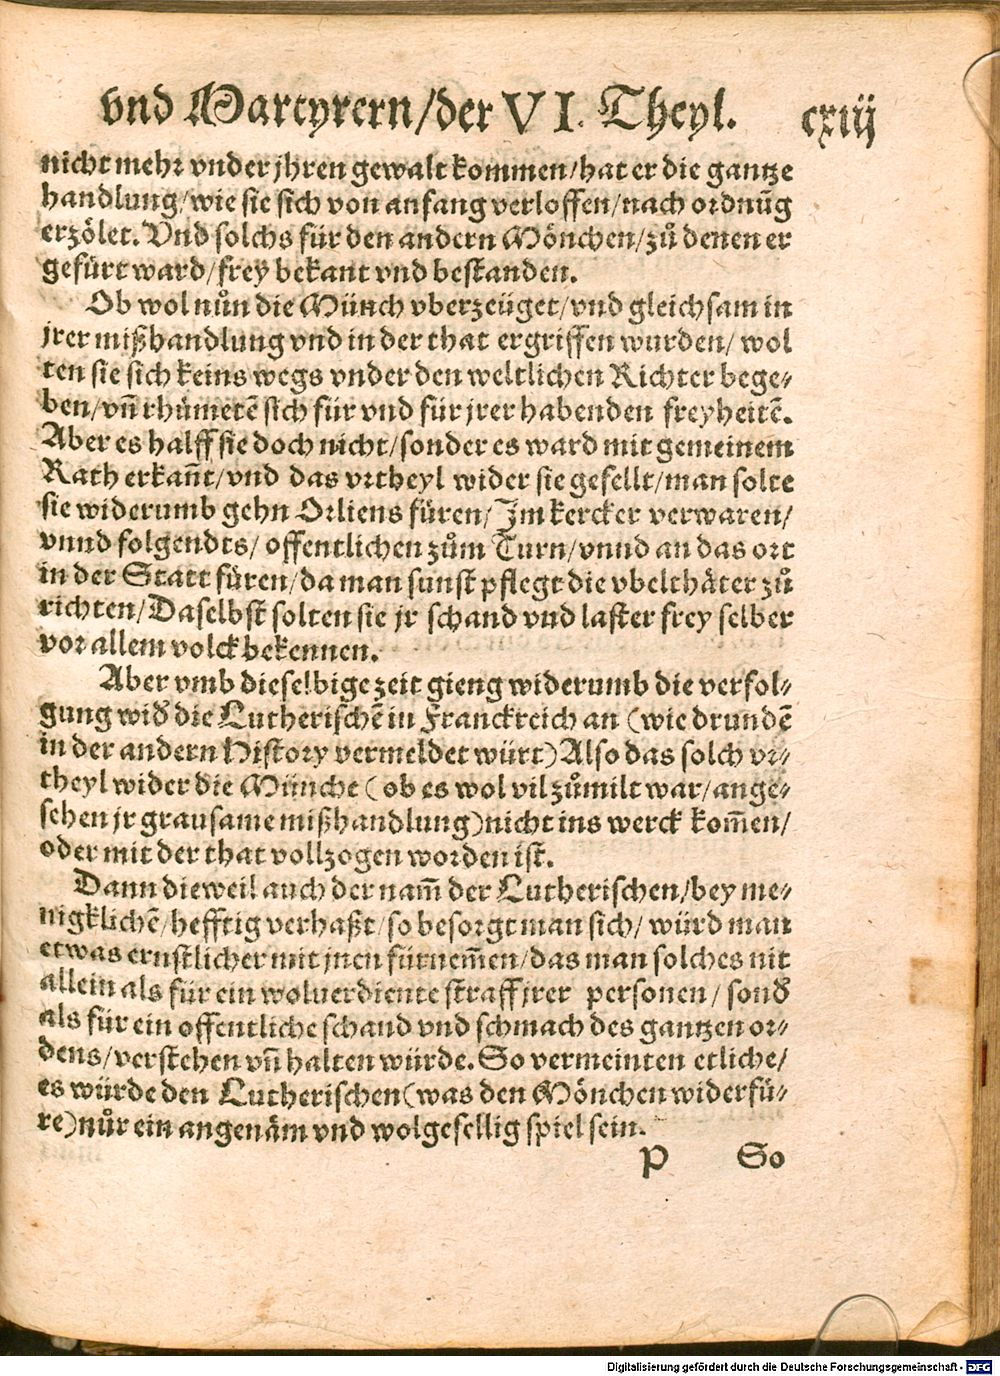 vnd Martyrern/der VI. Theyl. cxiij
nicht mehr vnder jhren gewalt kommen/hat er die gantze
handlung/wie sie sich von anfang verloffen/nach ordnũg
erzölet. Vnd solchs für den andern Mönchen/zů denen er
gefürt ward/frey bekant vnd bestanden.
Ob wol nůn die Münch vberzeüget/vnd gleichsam in
jrer mißhandlung vnd in der that ergriffen wurden/ wol
ten sie sich keins wegs vnder den weltlichen Richter bege-
ben/vñ rhůmetẽ sich für vnd für jrer habenden freyheitẽ.
Aber es halff sie doch nicht/sonder es ward mit gemeinem
Rath erkañt/vnd das vrtheyl wider sie gefellt/man solte
sie widerumb gehn Orliens füren/Im kercker verwaren/
vnnd folgendts/ offentlichen zům Turn/vnnd an das ort
in der Statt füren/da man sunst pflegt die vbelthäter zů
richten/Daselbst solten sie jr schand vnd laster frey selber
vor allem volck bekennen.
Aber vmb dieselbige zeit gieng widerumb die verfol-
gung wid̃ die Lutherischẽ in Franckreich an (wie drundẽ
in der andern History vermeldet würt) Also das solch vr-
theyl wider die Münche (ob es wol vil zůmilt war/ange-
sehen jr grausame mißhandlung)nicht ins werck kom̃en/
oder mit der that vollzogen worden ist.
Dann dieweil auch der nam̃ der Lutherischen/bey me-
nigklichẽ/hefftig verhaßt/so besorgt man sich/ würd man
etwas ernstlicher mit jnen fürnem̃en/das man solches nit
allein als für ein woluerdiente straff jrer personen/ sond̃
als für ein offentliche schand vnd schmach des gantzen or-
dens/verstehen vñ halten würde. So vermeinten etliche/
es würde den Lutherischen(was den Mönchen widerfü-
re)nůr ein angenäm vnd wolgefellig spiel sein.
P So
Digitalisierung gefördert durch die Deutsche Forschungsgemeinschaft - DFG